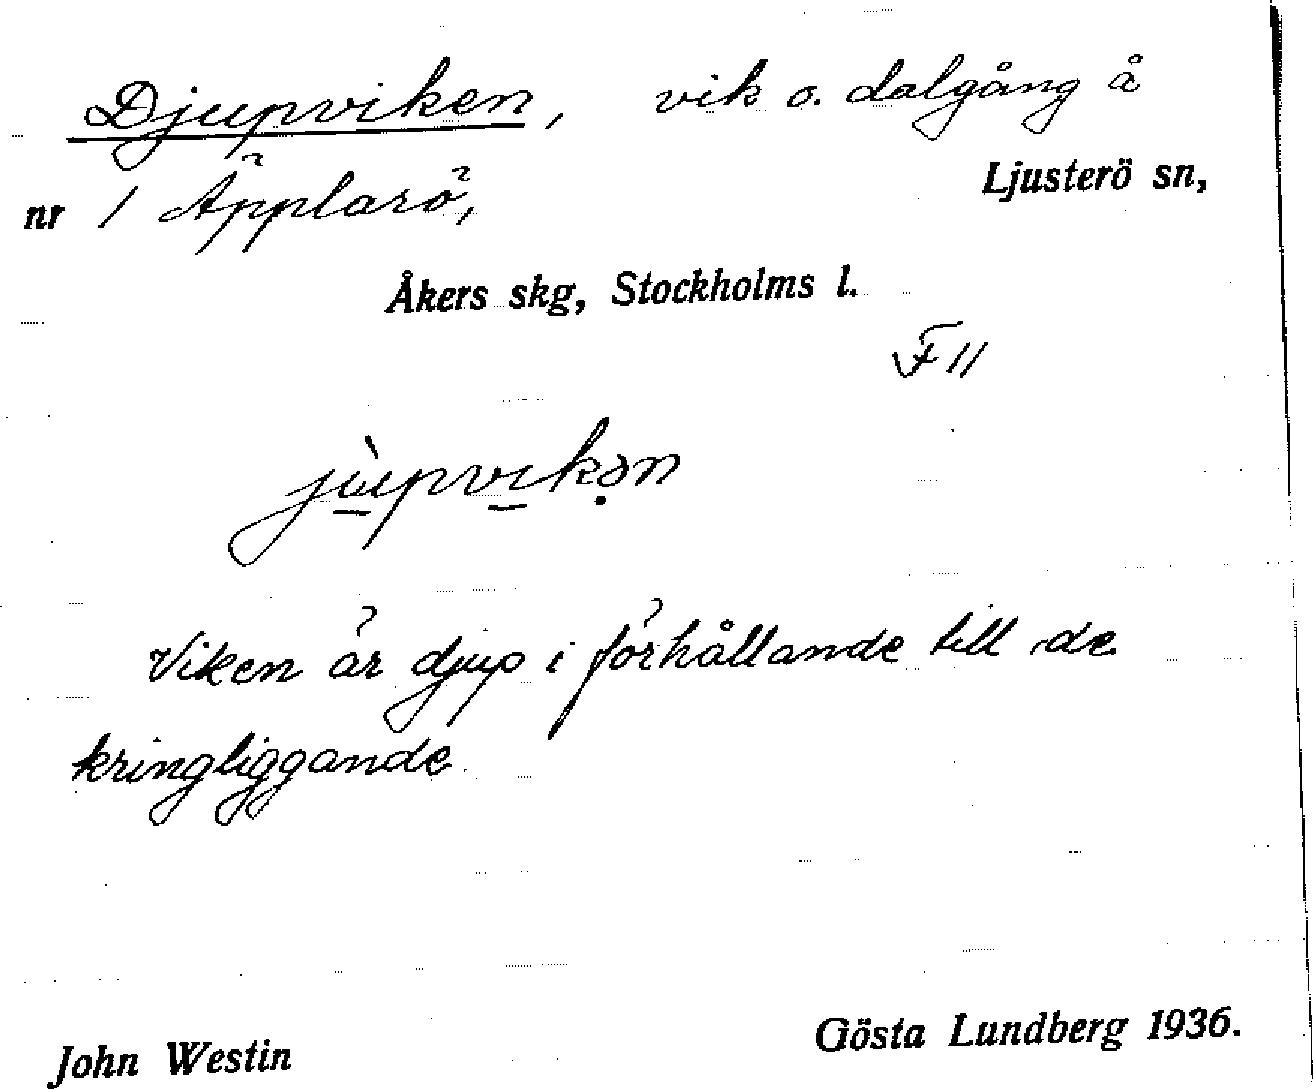 Djupviken, vik o. dalgång å
Ljusterö sn,
nr 1 Äpplarö,
Åkers skg, Stockholms l.
F 11
jùupvikən
Viken är djup i förhållande till de
kringliggande
Gösta Lundberg 1936.
John Westin